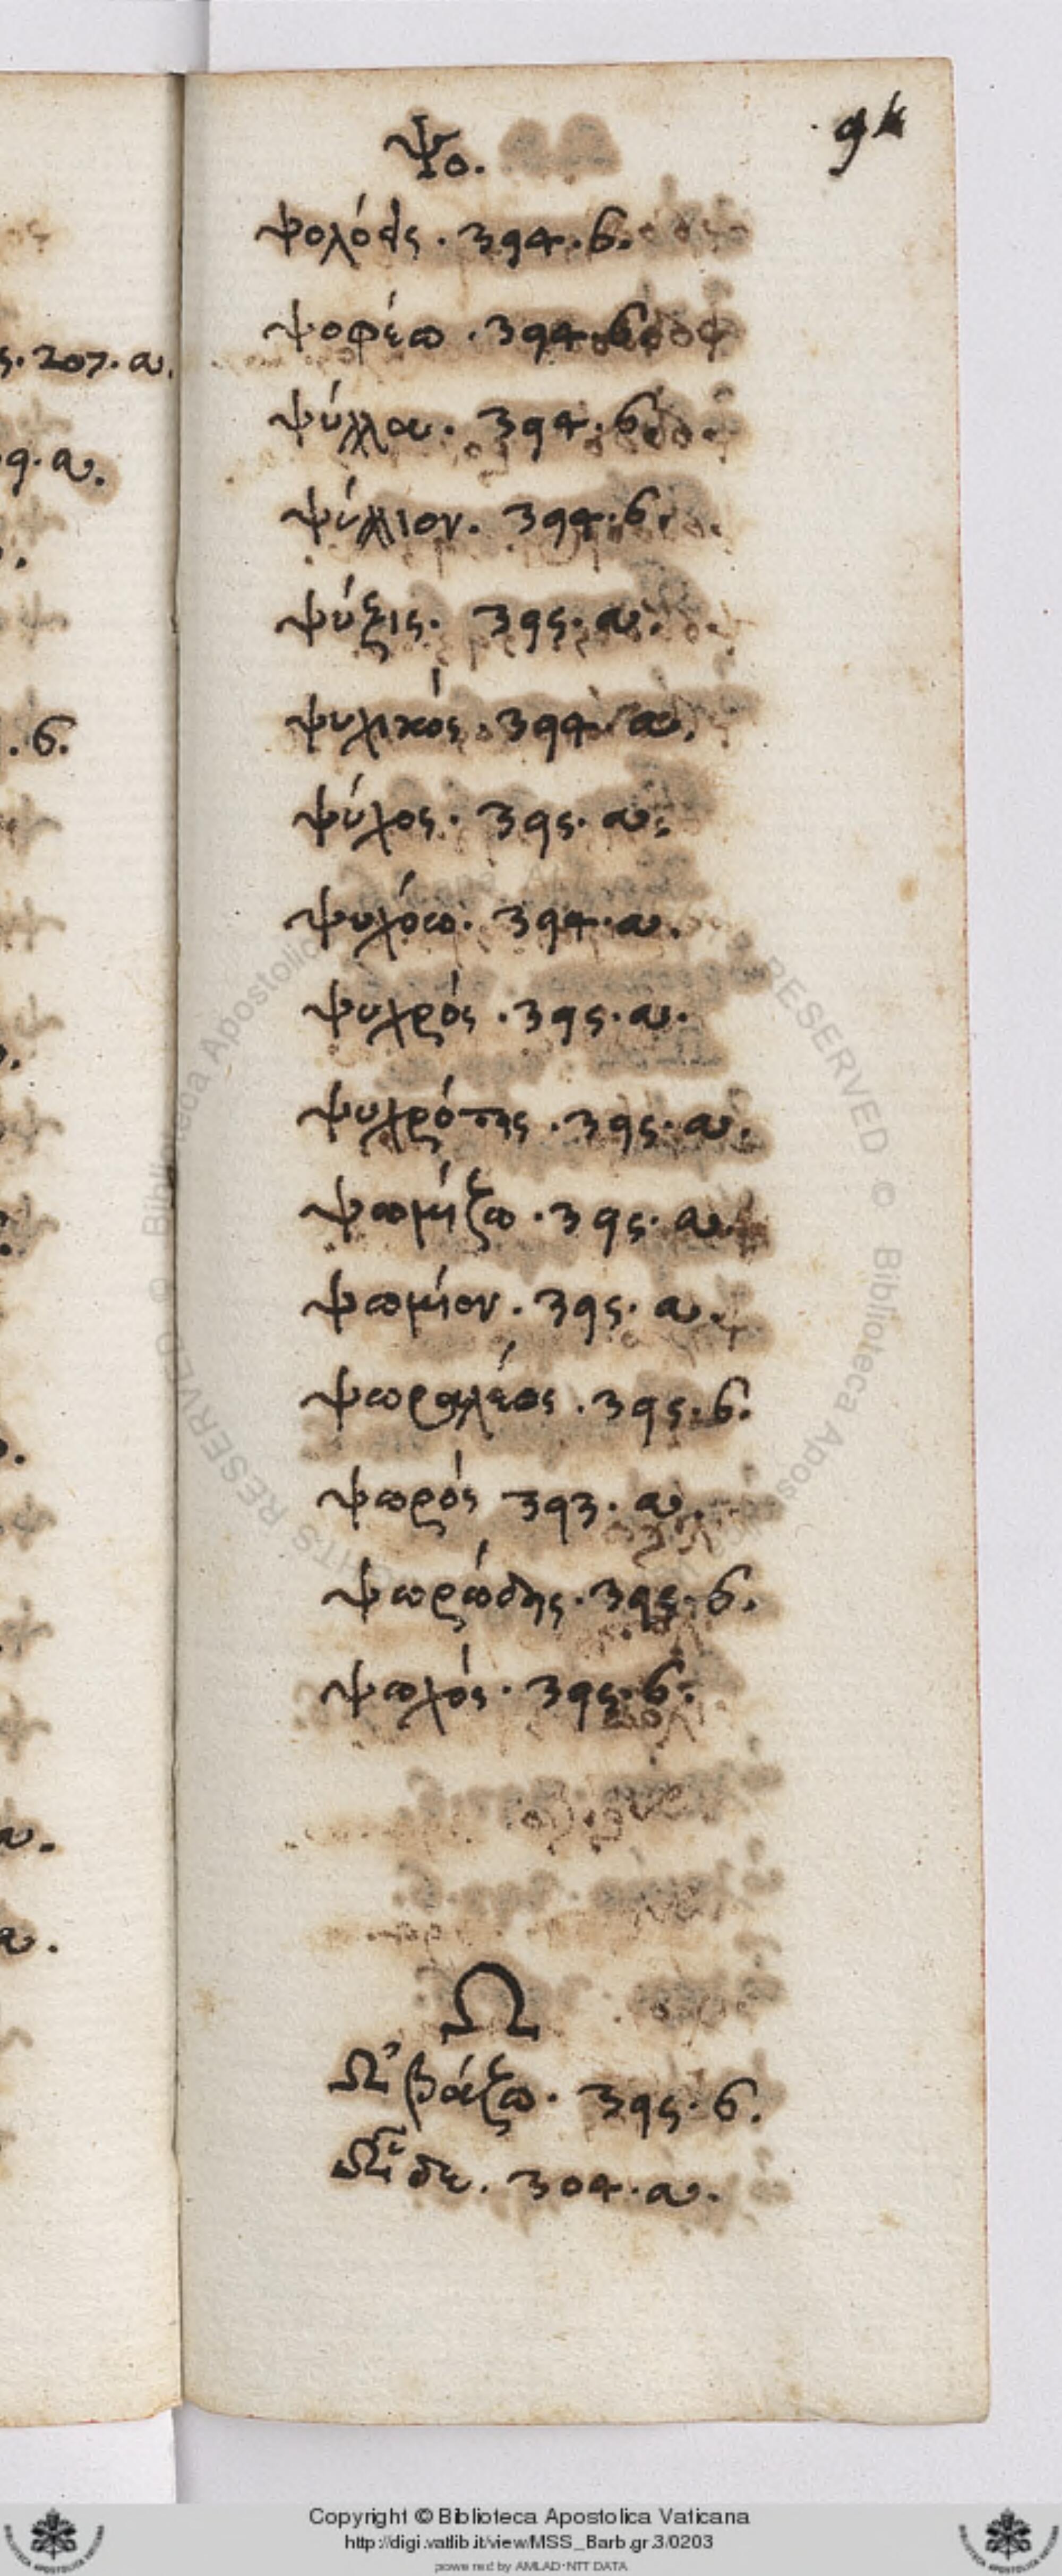 94
Ψο.
ψολόεις . 394. β.
ψοφέω . 394. β.
ψύλλου . 394. β.
ψύλλιον . 394. β.
ς . 207. α.
9. α.
ψύξις . 395. α.
ψυχικός . 394. α.
. β.
ψύχος . 395. α.
ψυχόω . 394. α.
ψυχρός . 395. α.
ψυχρότης . 395. α.
ψωμίζω . 395. α.
ψωμίον . 395. α.
ψωραλέος . 395. β.
ψωρός 393. α.
ψωρώδης . 395. β.
ψωχός . 395. β.
α.
α.
Ω
Ὠβάζω . 395. β.
Ὧδε . 304. α.
Copyright © Biblioteca Apostolica Vaticana
http://digi.vatlib.it/view/MSS_Barb.gr.3/0203
powered by AMLAD-NTT DATA